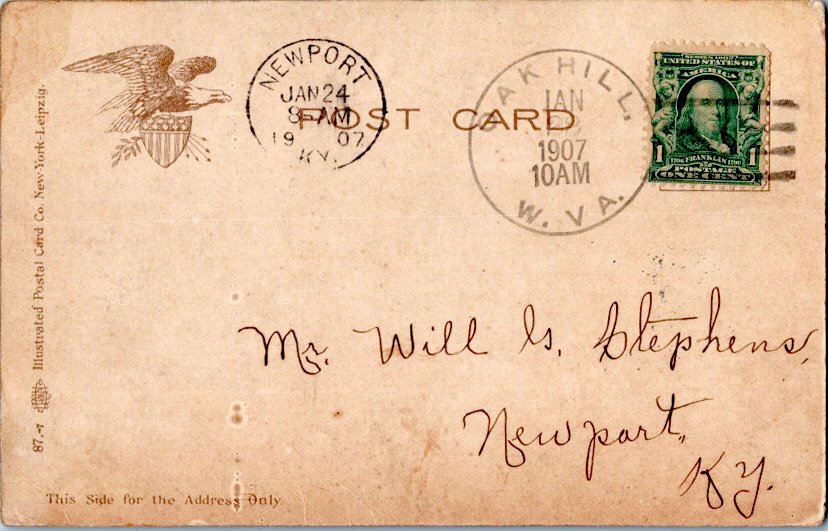 NEWPORT
JAN 24
8-AM
19 07
KY.
POST CARD
OAK HILL,
JAN
1907
10AM
W. VA.
SERIES 1902
UNITED STATES OF
AMERICA
1 1
1706 FRANKLIN 1790
POSTAGE
ONE CENT
Mr. Will G. Stephens,
Newport,
Ky.
87.-7 Illustrated Postal Card Co. New-York-Leipzig.
This Side for the Address Only.